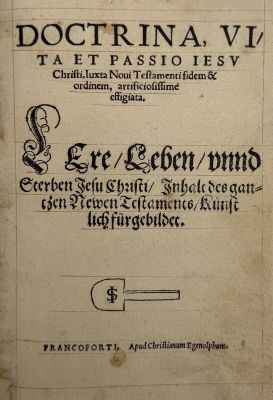 DOCTRINA, VI/
TA ET PASSIO IESV
Christi, Iuxta Noui Testamenti fidem &
ordinem, artificiosissimè
effigiata.
LEre/Leben/vnnd
Sterben Jesu Christi/ Jnhalt des gan-
tzen Newen Testaments/Künst
lich fürgebildet.
$
FRANCOFORTI, Apud Christianum Egenolphum.